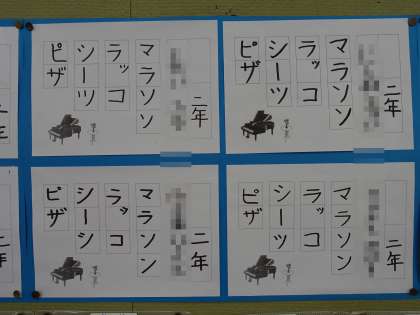 二年
マラソン
ラッコ
シーツ
ピザ
二年
マラソン
ラッコ
シーツ
ピザ
二年
マラソン
ラッコ
シーツ
ピザ
二年
マラソン
ラッコ
シーシ
ピザ